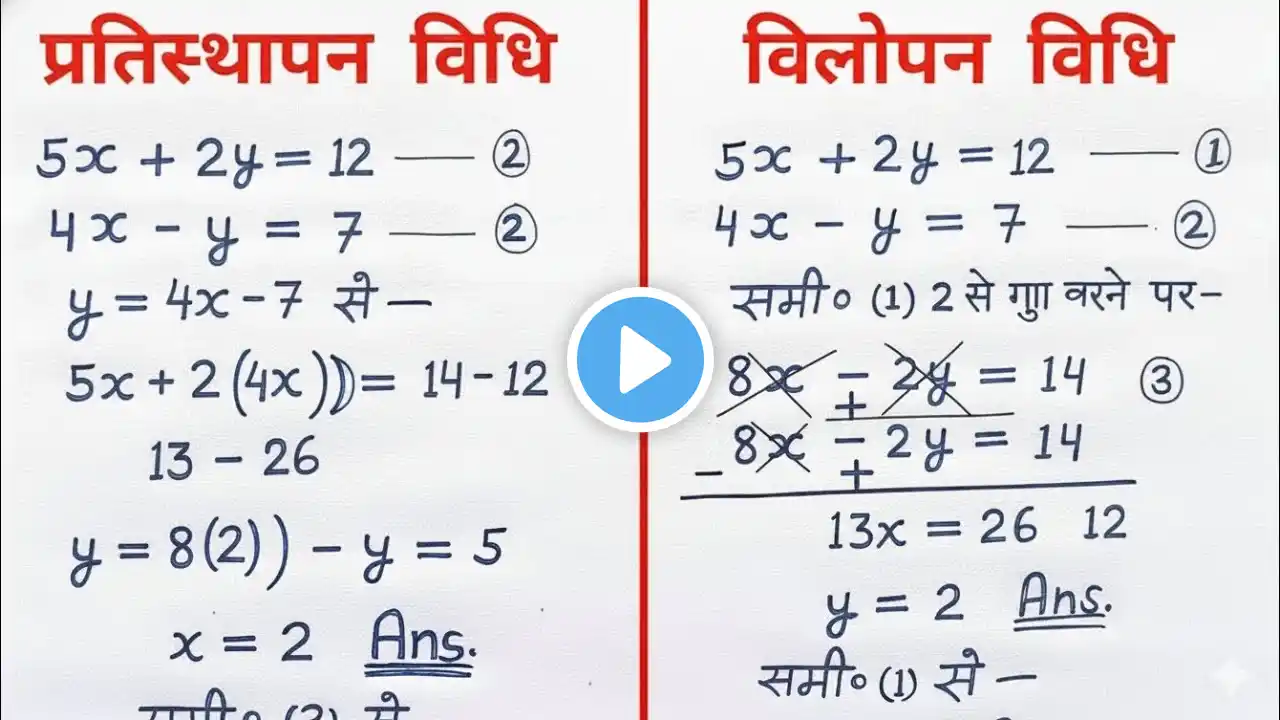 प्रतिस्थापन विधि
5x + 2y = 12 —— ②
4x - y = 7 —— ②
y = 4x - 7 से —
5x + 2(4x)) = 14 - 12
13 - 26
y = 8(2)) - y = 5
x = 2 Ans.
विलोपन विधि
5x + 2y = 12 —— ①
4x - y = 7 —— ②
समी० (1) 2 से गुाा वरने पर -
8x - 2y = 14 ③
+
- 8x - 2y = 14
+
13x = 26 12
y = 2 Ans.
समी० (1) से —